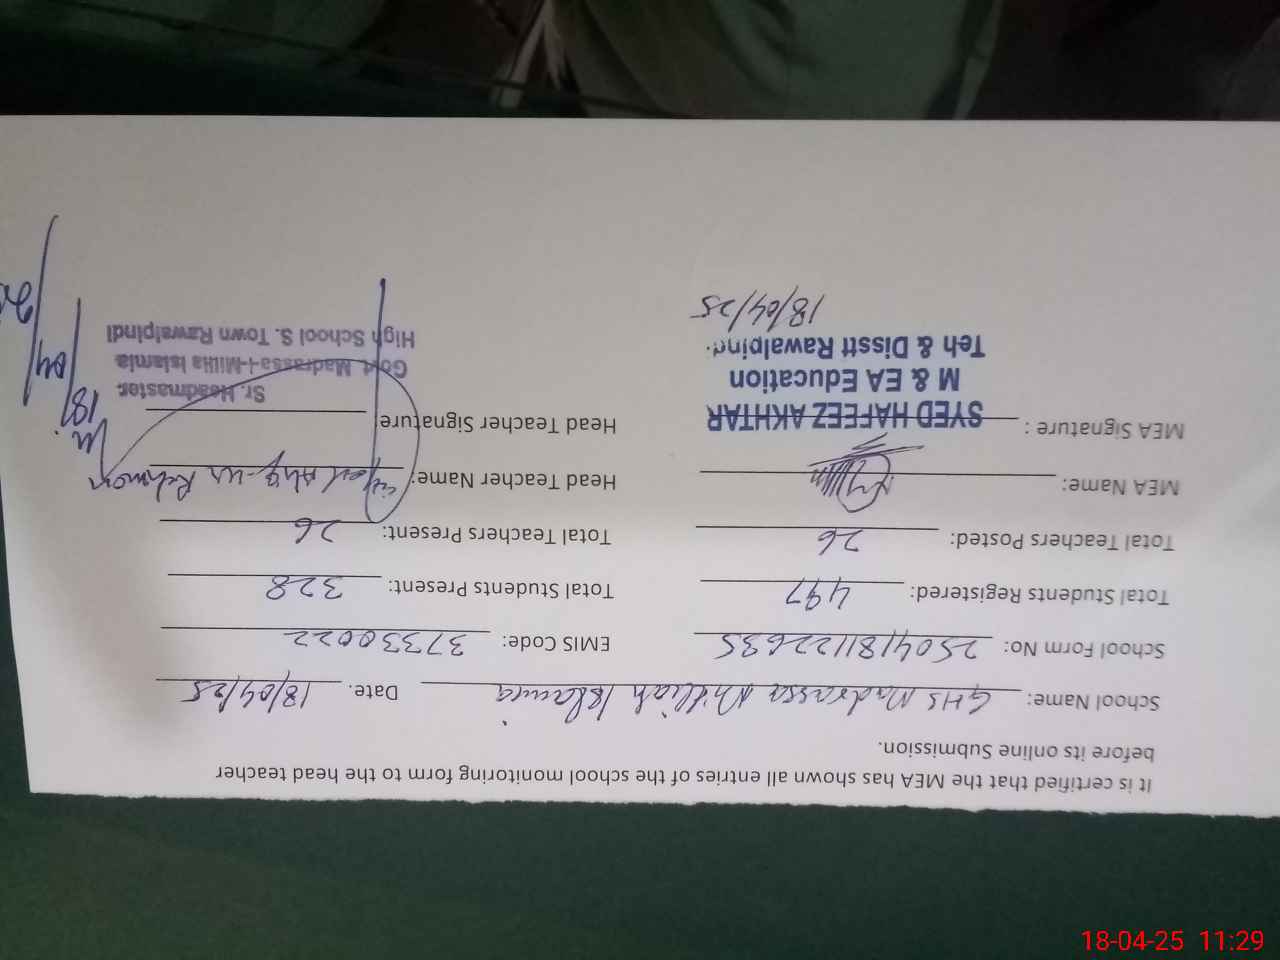 It is certified that the MEA has shown all entries of the school monitoring form to the head teacher
before its online Submission.
School Name: GHS Madrassa Milliah Islamia Date. 18/04/25
School Form No: 2504181122635 EMIS Code: 37330022
Total Students Registered: 497 Total Students Present: 328
Total Teachers Posted: 26 Total Teachers Present: 26
MEA Name: Head Teacher Name: -ur Rehman
MEA Signature : Head Teacher Signature:
SYED HAFEEZ AKHTAR
M & EA Education
Teh & Disstt Rawalpindi
18/04/25
Sr. Headmaster
Govt. Madrassa-i-Millia Islamia
High School S. Town Rawalpindi
18/04/
18-04-25 11:29